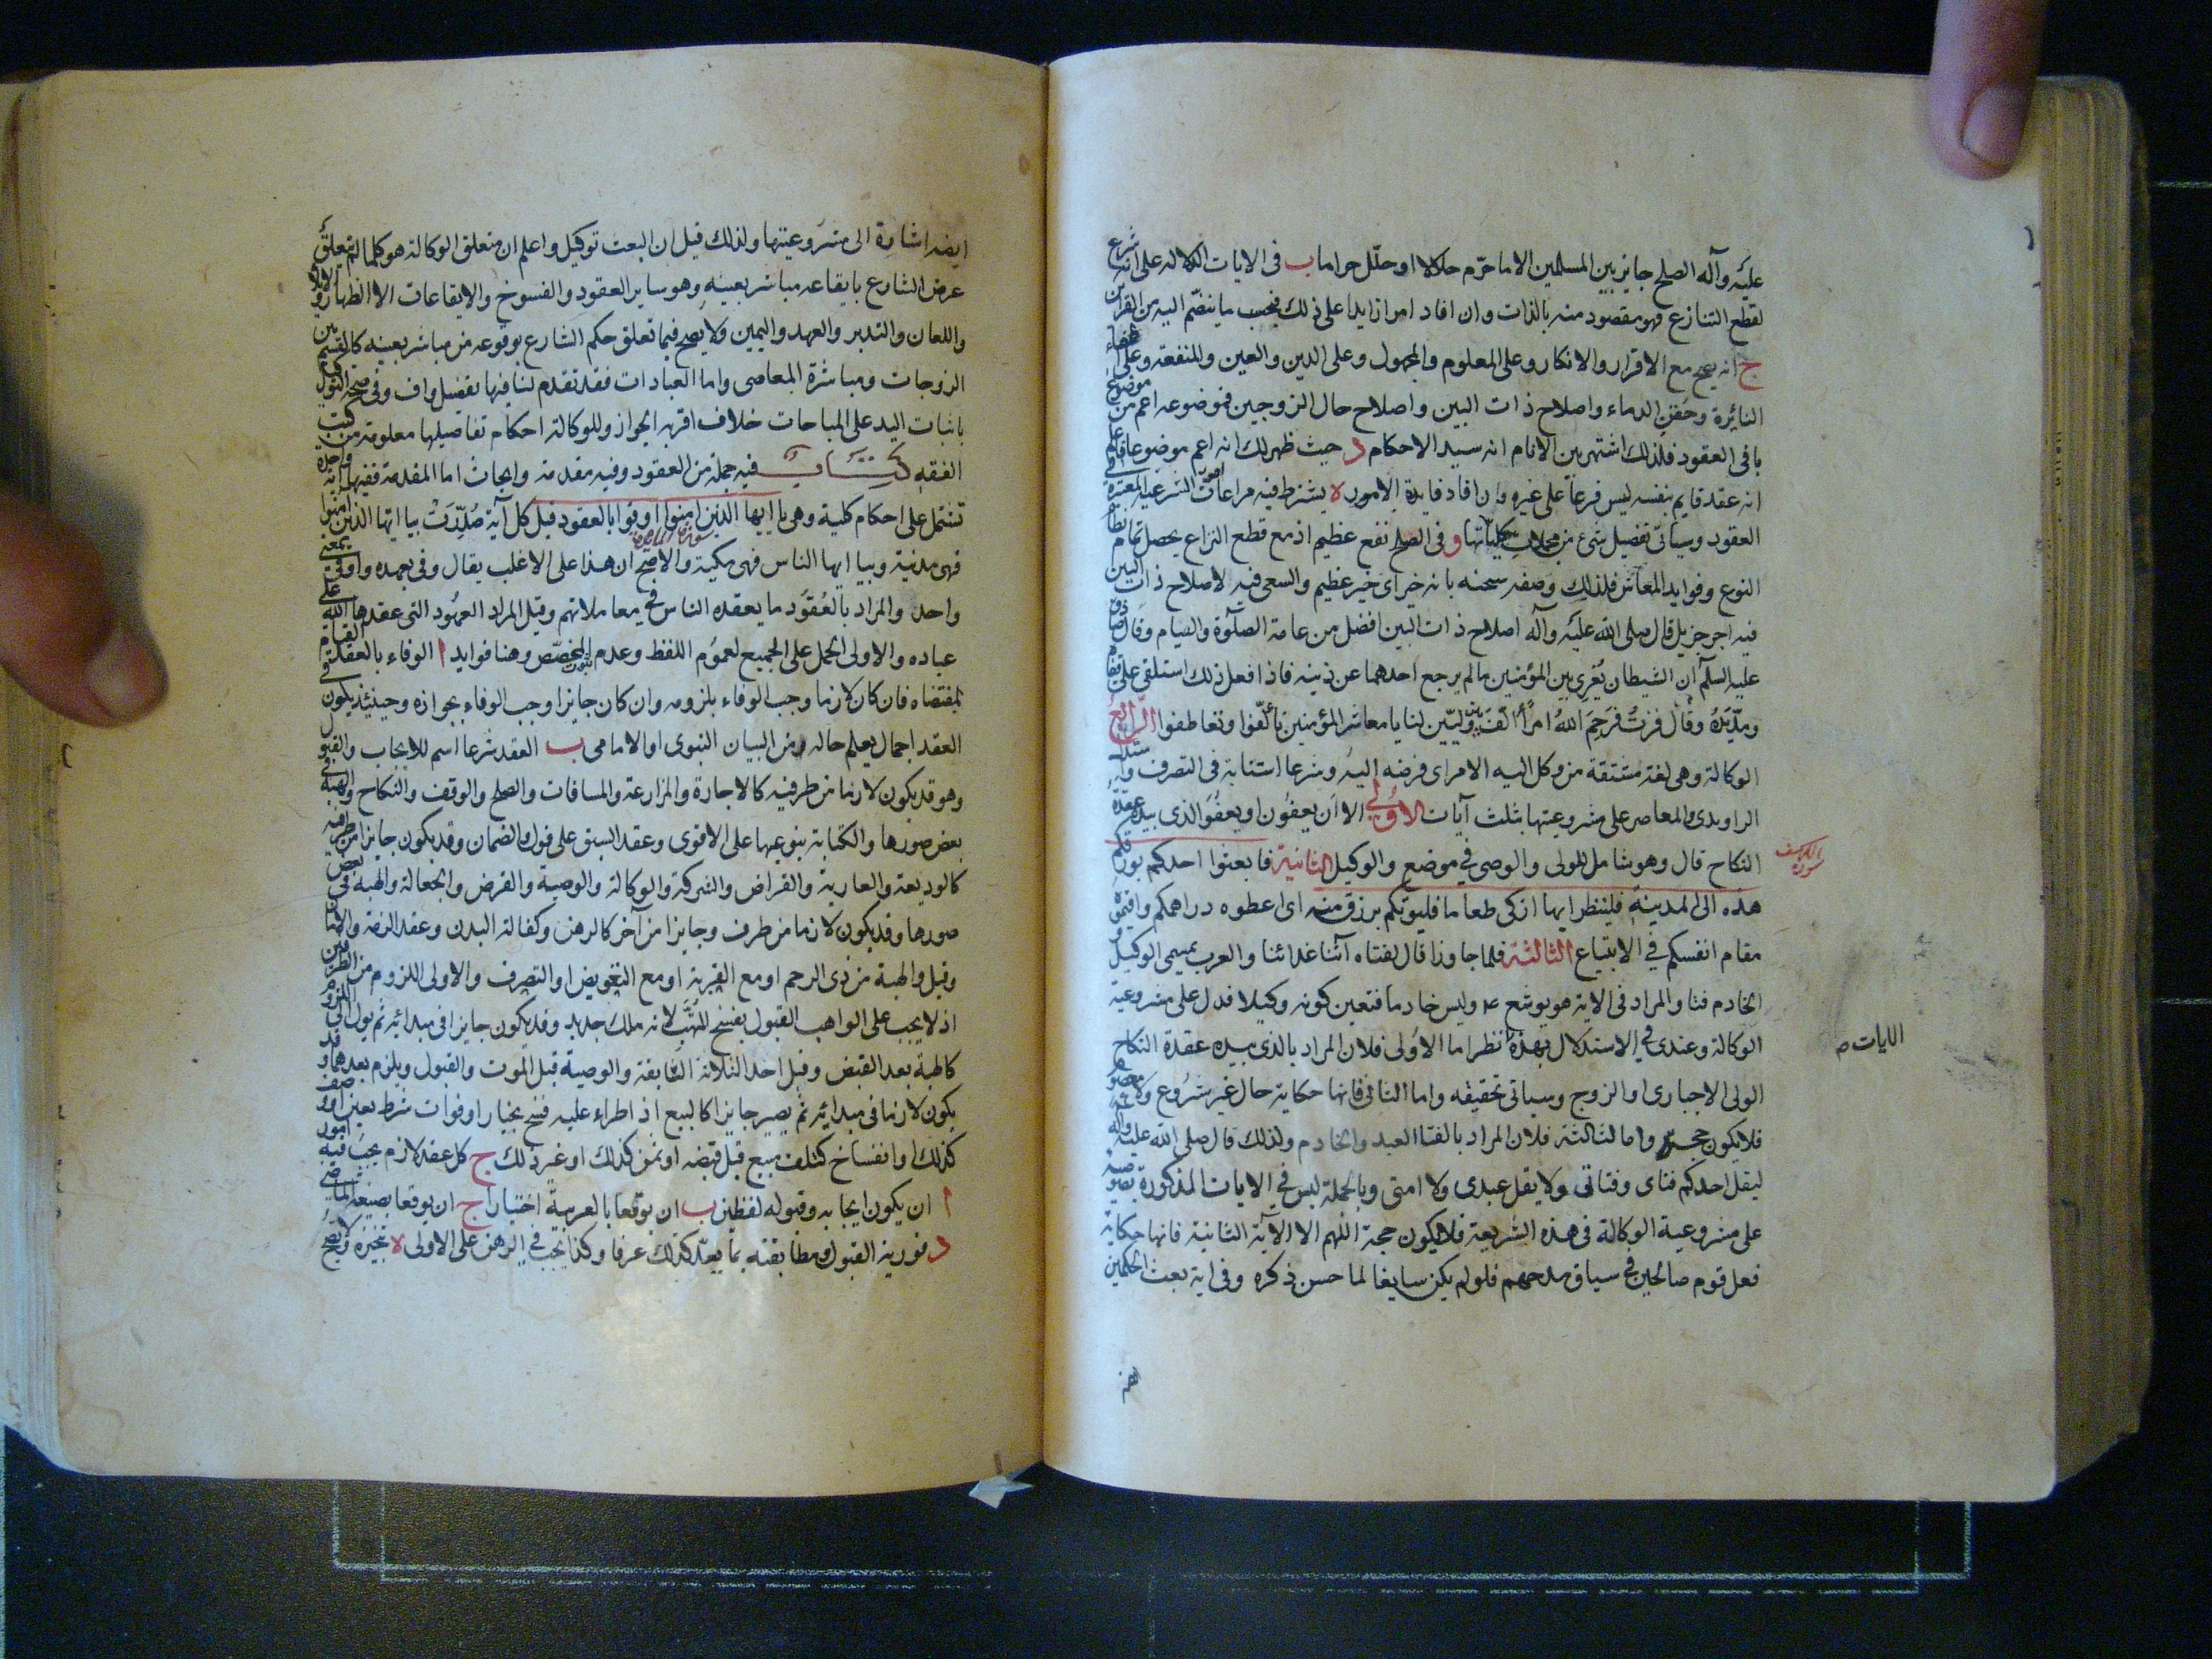 عليه وآله الصلح جايز بين المسلمين الا ما حرّم حلالا او حلّل حراما ب فى الايات الدلالة على انه شرع
لقطع التنازع فهو مقصود منه بالذات وان افاد امرا زايدا على ذلك فبحسب ما ينضّم اليه من القراين
ج انه يصح مع الاقرار والانكار وعلى المعلوم والمجهول وعلى الدين والعين والمنفعة وعلى اطفاء
النائرة وحَقن الدماء واصلاح ذات البين واصلاح حال الزوجين فموضوعه اعم من موضوع
باقى العقود فلذلك اشتهر بين الانام انه سيد الاحكام د حيث ظهر لك انه اعم موضوعا فاعلم
انه عقد قايم بنفسه ليس فرعاً على غيره وان افاد فايدة الامور ه يشترط فيه مراعات الشرعية المعتبرة فى
العقود وسياتى تفصيل شئ من كلياتها و فى الصلح نفع عظيم اذ مع قطع النزاع يحصل تمام نظام
النوع وفوايد المعاش فلذلك وصفه سبحنه بانه خير اى خير عظيم والسعى فيه لاصلاح ذات البين
فيه اجر جزيل قال صلى الله عليه وآله اصلاح ذات البين افضل من عامة الصلوة والصيام وقال الصادق
عليه السلم ان الشيطان يُغرى بين المؤمنين ما لم يرجع احدهما عن دينه فاذا فعل ذلك استلقى على قفاه
ومدّ يَدَهُ وقال فزتُ فرَحِمَ اللهُ امرأً الّفَ بين وليّين لنا يا معاشر المؤمنين تألّفوا وتعاطفوا الرّابع
الوكالة وهى لغة مشتقة من وكل اليه الامر اى فوضه اليه وشرعا استنابة فى التصرف واستدل
الراوندى والمعاصر على مشروعيتها بثلث آيات الاولى الا اَن يعفُون او يعفُوَا الذى بيده عقدة
النكاح قال وهو شامل للولى والوصى فى موضع والوكيل الثانية فابعثوا احدكم بورقكم
سورة الكهف
هذه الى المدينة فلينظر ايها ازكى طعاما فلياتكم برزق منه اى اعطوه دراهمكم واقيموه
مقام انفسكم فى الابتياع الثالثة فلما جاوزا قال لفتاه آتنا غدائنا والعرب يسمى الوكيل و
الخادم فتا والمراد فى الاية هو يوشع ع وليس خادما فتعين كونه وكيلا فدل على مشروعية
الوكالة وعندى فى الاستدلال بهذه نظر اما الاولى فلان المراد بالذى بيده عقدة النكاح هو
الايات ص
الولى الاجبارى او الزوج وسياتى تحقيقه واما الثانى فانها حكاية حال غير مشروع ولا معصوم
فلا يكون حجة واما الثالثة فلان المراد بالفتا العبد والخادم ولذلك قال صلى الله عليه وآله
ليقل احدكم فتاى وفتاتى ولا يقل عبدى ولا امتى وبالجملة ليس فى الايات المذكورة تصريح
على مشروعية الوكالة فى هذه الشريعة فلا يكون حجة اللهم الا الآية الثانية فانها حكاية
فعل قوم صالحين فى سياق مدحهم فلو لم يكن سايغا لما حسن ذكره وفى اية بعث الحكمين
ايضا اشارة الى مشروعيتها ولذلك قيل ان البعث توكيل واعلم ان متعلق الوكالة هو كلما لم يتعلق
غرض الشارع بايقاعه مباشر بعينه وهو ساير العقود والفسوخ والايقاعات الا الظهار والايلاء
واللعان والتدبر والعهد واليمين ولا يصح فيما تعلق حكم الشارع بوقوعه من مباشر بعينه كالقسم بين
الزوجات ومباشرة المعاصى واما العبادات فقد تقدم لنا فيها تفصيل واف وفى صحة التوكيل
باثبات اليد على المباحات خلاف اقربه الجواز وللوكالة احكام تفاصيلها معلومة من كتب
الفقه كتاب فيه جملة من العقود وفيه مقدمة وابحاث اما المقدمة ففيها آية واحدة
تشتمل على احكام كلية وهى يا ايها الذين امنوا اوفوا بالعقود قيل كل آية صُدِّرَتْ بيا ايها الذين امنوا
سورة المائدة
فهى مدنية وبيا ايها الناس فهى مكية والاصح ان هذا على الاغلب يقال وفى بعهده واوفى بمعنى
واحد والمراد بالعُقُود ما يعقده الناس فى معاملاتهم وقيل المراد العهُود التى عقدها الله على
عباده والاولى الحمل على الجميع لعموم اللفظ وعدم المخصّص وهنا فوايد ا الوفاء بالعقد القيام
بمقتضاه فان كان لازما وجب الوفاء بلزومه وان كان جايزا وجب الوفاء بجوازه وحينئذ يكون فى
العقد اجمال يعلم حاله من البيان النبوى او الامامى ب العقد شرعا اسم للايجاب والقبول
وهو قد يكون لازما من طرفيه كالاجارة والمزارعة والمساقات والصلح والوقف والنكاح والهبة فى
بعض صورها والكتابة بنوعيها على الاقوى وعقد السبق على قول والضمان وقد يكون جايزا من طرفيه
كالوديعة والعارية والقراض والشركة والوكالة والوصية والقرض والجعالة والهبة فى بعض
صورها وقد يكون لازما من طرف وجايزا من آخر كالرهن وكفالة البدن وعقد الذمة والامان
وقيل والهبة من ذى الرحم او مع القربة او مع التعويض او التصرف والاولى اللزوم من الطرفين
اذ لا يجب على الواهب القبول بفسخ المتهب لانه ملك جديد وقد يكون جايزا فى مبدائه ثم يول الى اللزوم
كالهبة بعد القبض وقبل احد الثلاثة السّابقة والوصية قبل الموت والقبول ويلزم بعدهما وقد
يكون لازما فى مبدائه ثم يصير جايزا كالبيع اذا طراء عليه فسخ بخيار او فوات شرط بعين او وصف
كذلك او انفساخ كتلف مبيع قبل قبضه او ثمن كذلك او غير ذلك ج كل عقد لازم يجب فيه امور
ا ان يكون ايجابه وقبوله لفظين ب ان يوقعا بالعربية اختيارا ج ان يوقعا بصيغة الماضى
د فورية القبول ومطابقته بما يعدّ كذلك عرفا وكذا يجب فى الرهن على الاولى ه تنجيزه